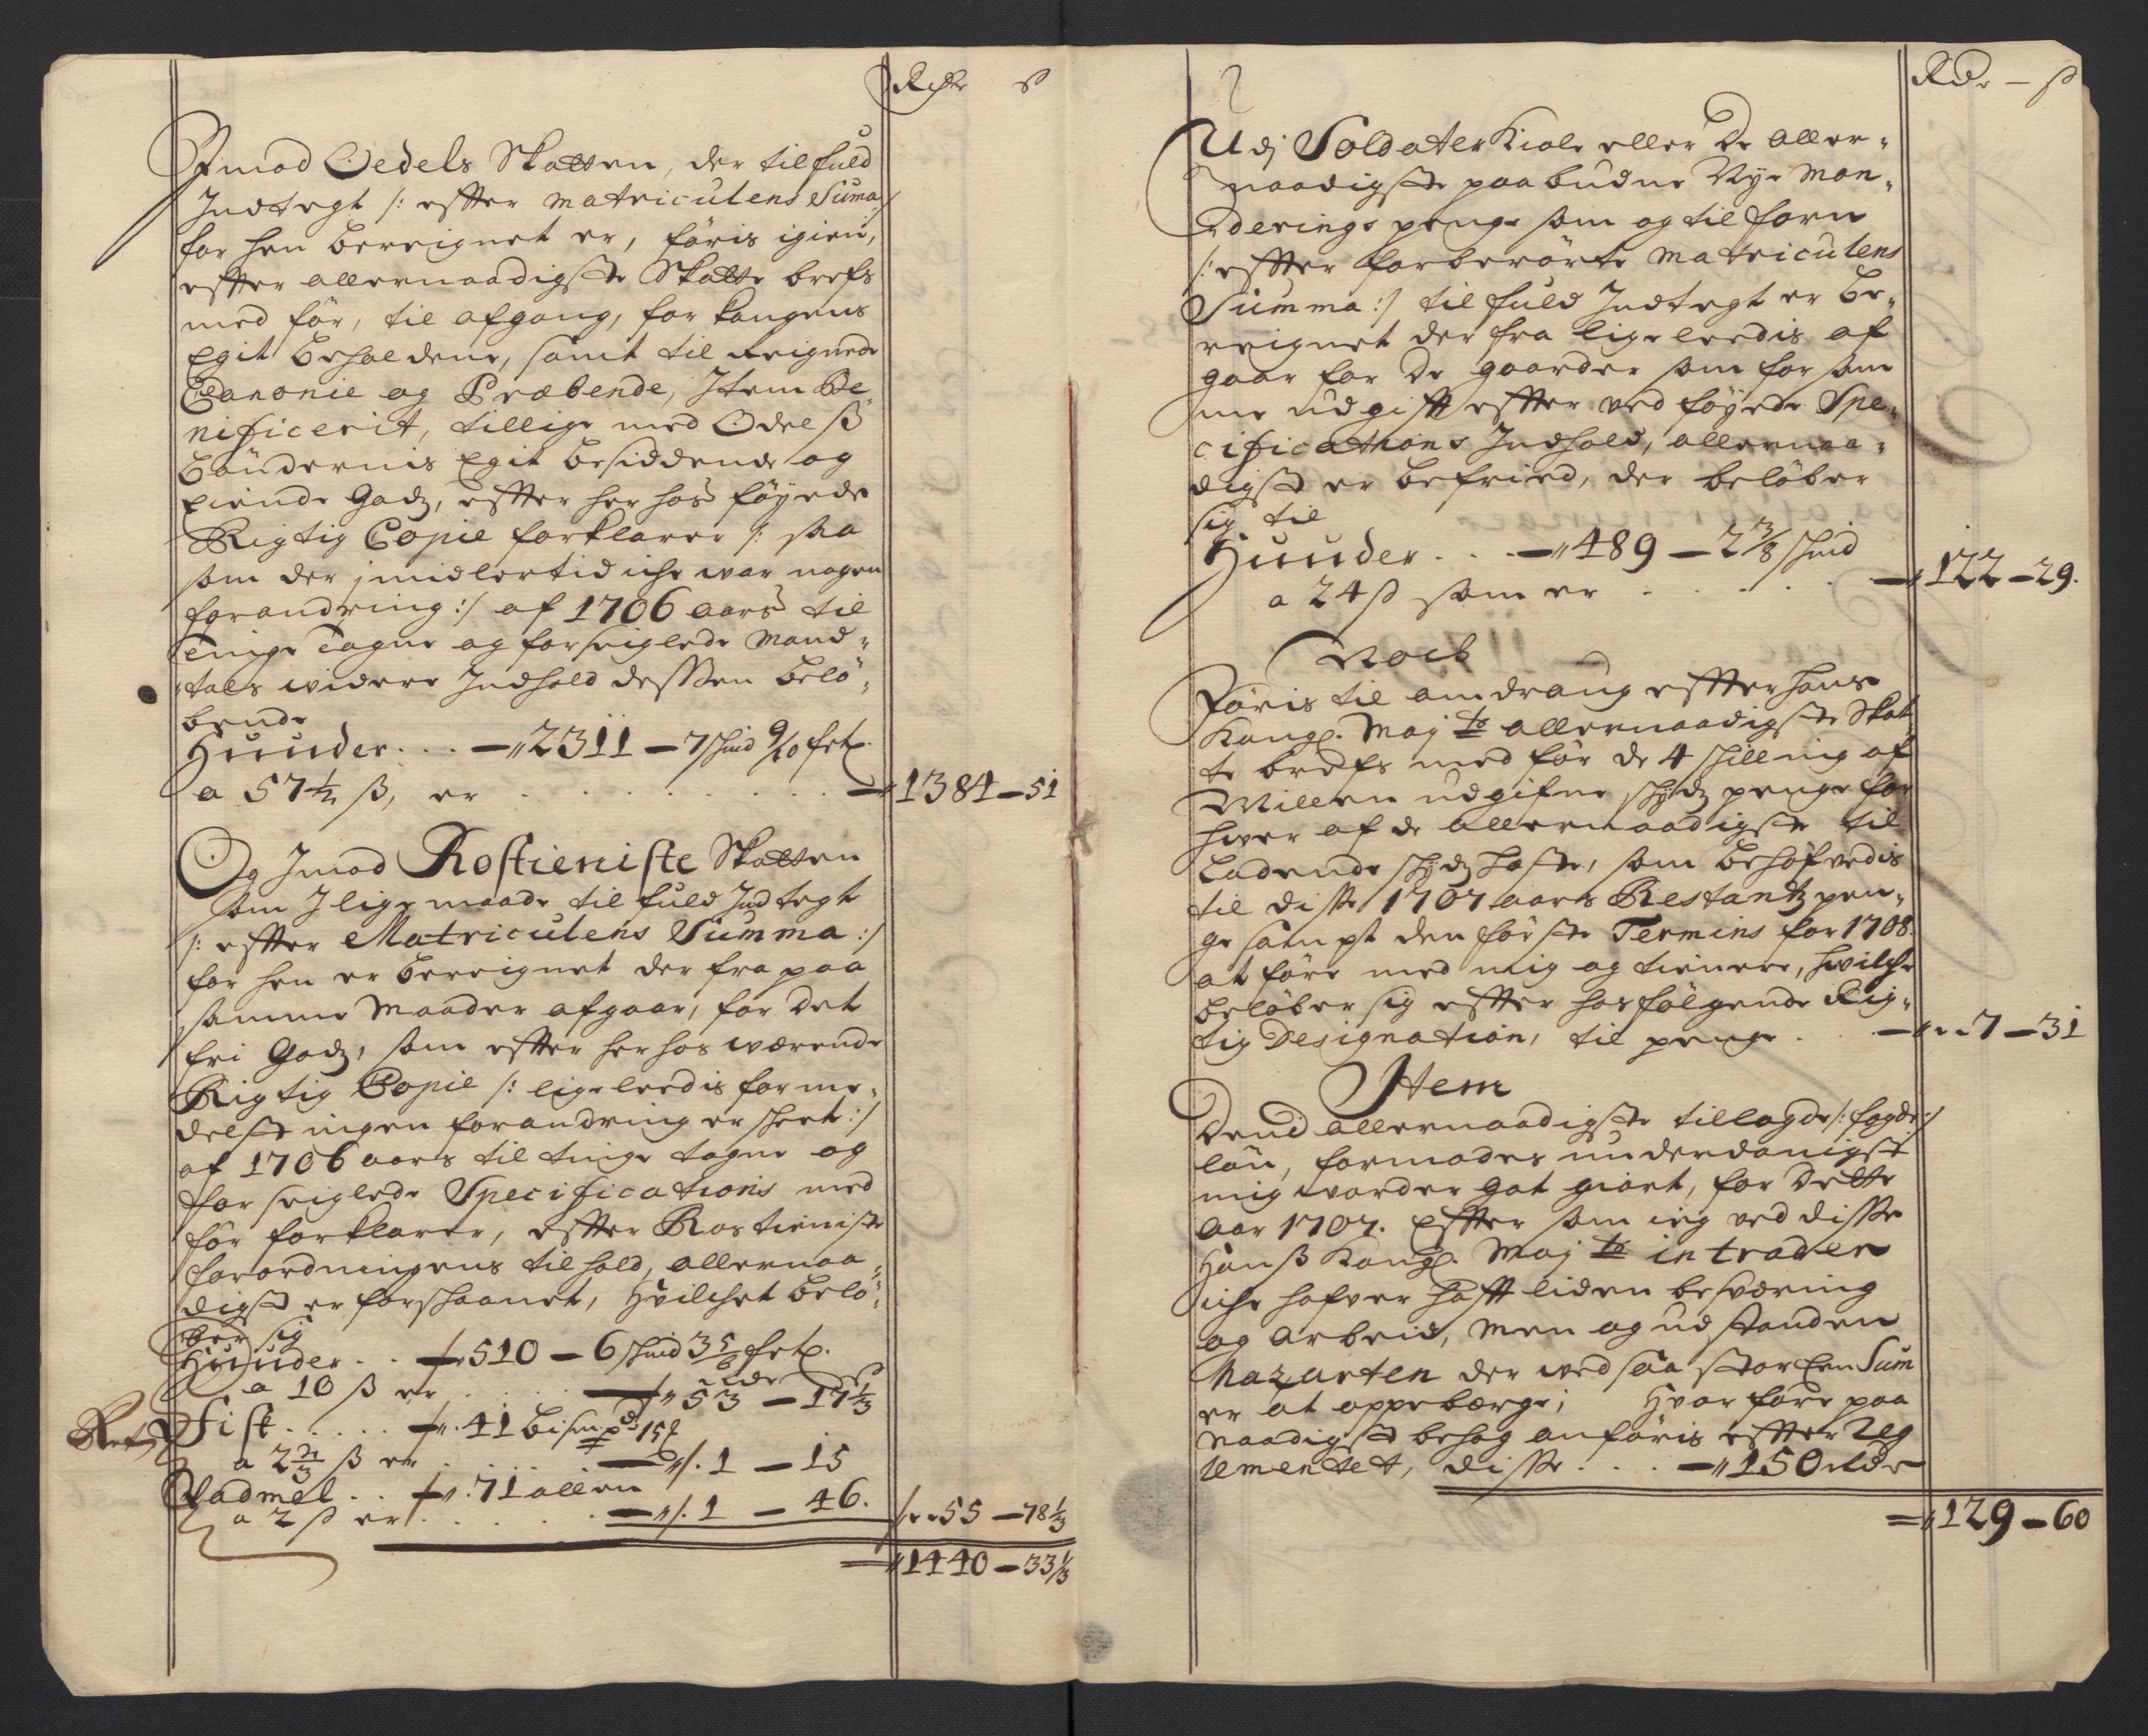 Rdr ß
Imod Oedels Skatten, der til fuld
Indtegt /: effter Matriculens Suma/
for hen bereignet er, föris igien,
effter allernaadigste Skatte brefs
med för, til afgang, for kongens
Egit beholdene, samt til
Canonie og Præbende, Item Be„
nificerit, tillige med Odelß
Böndernis Egit besiddende og
Eiende Godz, effter her hos föyede
Rigtig Copie forklarer /: saa
som der imidlertid iche war nogen
forandring :/ af 1706 aars til
Tinge Tagne og forseiglede Mand„
tals widere Indhold dessen belö„
bende
Huuder . . . — 2311 — 7 schind 9/10 
a 57½ ß, er . . . . . . — 1384 — 51
Og Imod Rostieniste Skatten
som I lige maade til fuld Indtegt
/: effter Matriculens Summa :/
for hen er bereignet der fra paa
samme Maader afgaar, for det
fri Godz, som effter her hos wærende
Rigtig Copie /: ligeleedis forme„
delst ingen forandring er skeet :/
af 1706 aars til tinge tagne og
forseiglede Specifications med
för forklarer, effter Rostieniste
forordningens tilhold, allernaa„
digst er forschaanet, Hvilchet belö„
ber sig
Huuder . . — 510 — 6 schind 3 5/6 
a 10 ß er . . . — 53 rdr — 17⅓ ß
Fisk . . . . . — 41 bismpd 15
a 2 ß er . . . — 1 — 15
Wadmel . . — 71 allen
a 2 ß er . . . . . — 1 — 46. 55 — 78⅓
1440 — 33⅓
Rdr — ß
Udj Soldater Kiole eller De aller„
naadigste paabudne Nye Mon„
derings penge som og til forn
/: effter forberörte Matriculens
Summa :/ til fuld Indtegt er be„
reignet der fra ligeleedis af
gaar for De gaarder som for sam
me udgifft effter ved föyede Spe„
cifications Indhold, allernaa„
digst er befried, der belöber
sig til
Huuder . . . — 489 — 2 3/8 schind
a 24 ß som er . . . . . — 122 — 29.
Noch
Föris til andrang effter Hans
Kongl. Majts allernaadigste Skat
te brefs med för de 4 skilling af
Millen udgifne skydz penge for
hver af de allernaadigste til
ladende skydz Heste, som behöfvedis
til disse 1707 aars Restantz pen„
ge sampt den förste Termins for 1708.
at före med mig og tienere, hvilche
belöber sig effter hosfölgende Rig„
tig Designation, til penge . . — 7 — 31
Item
Dend allernaadigste tillagde /: fogde :/
lön, formodes underdanigst
mig vorder got giort, for dette
Aar 1707. Effter som ieg ved disse
Hanß Kongl. Majts intrader
iche hafver hafft liden besværing
og Arbeid, Men og udstanden
Hazarten der wed saa stor Een Sum
er at oppebærge; Hvor fore paa
Naadigst behag anföris effter Reg
lementet, disse . . . — 150 rdr
129 — 60